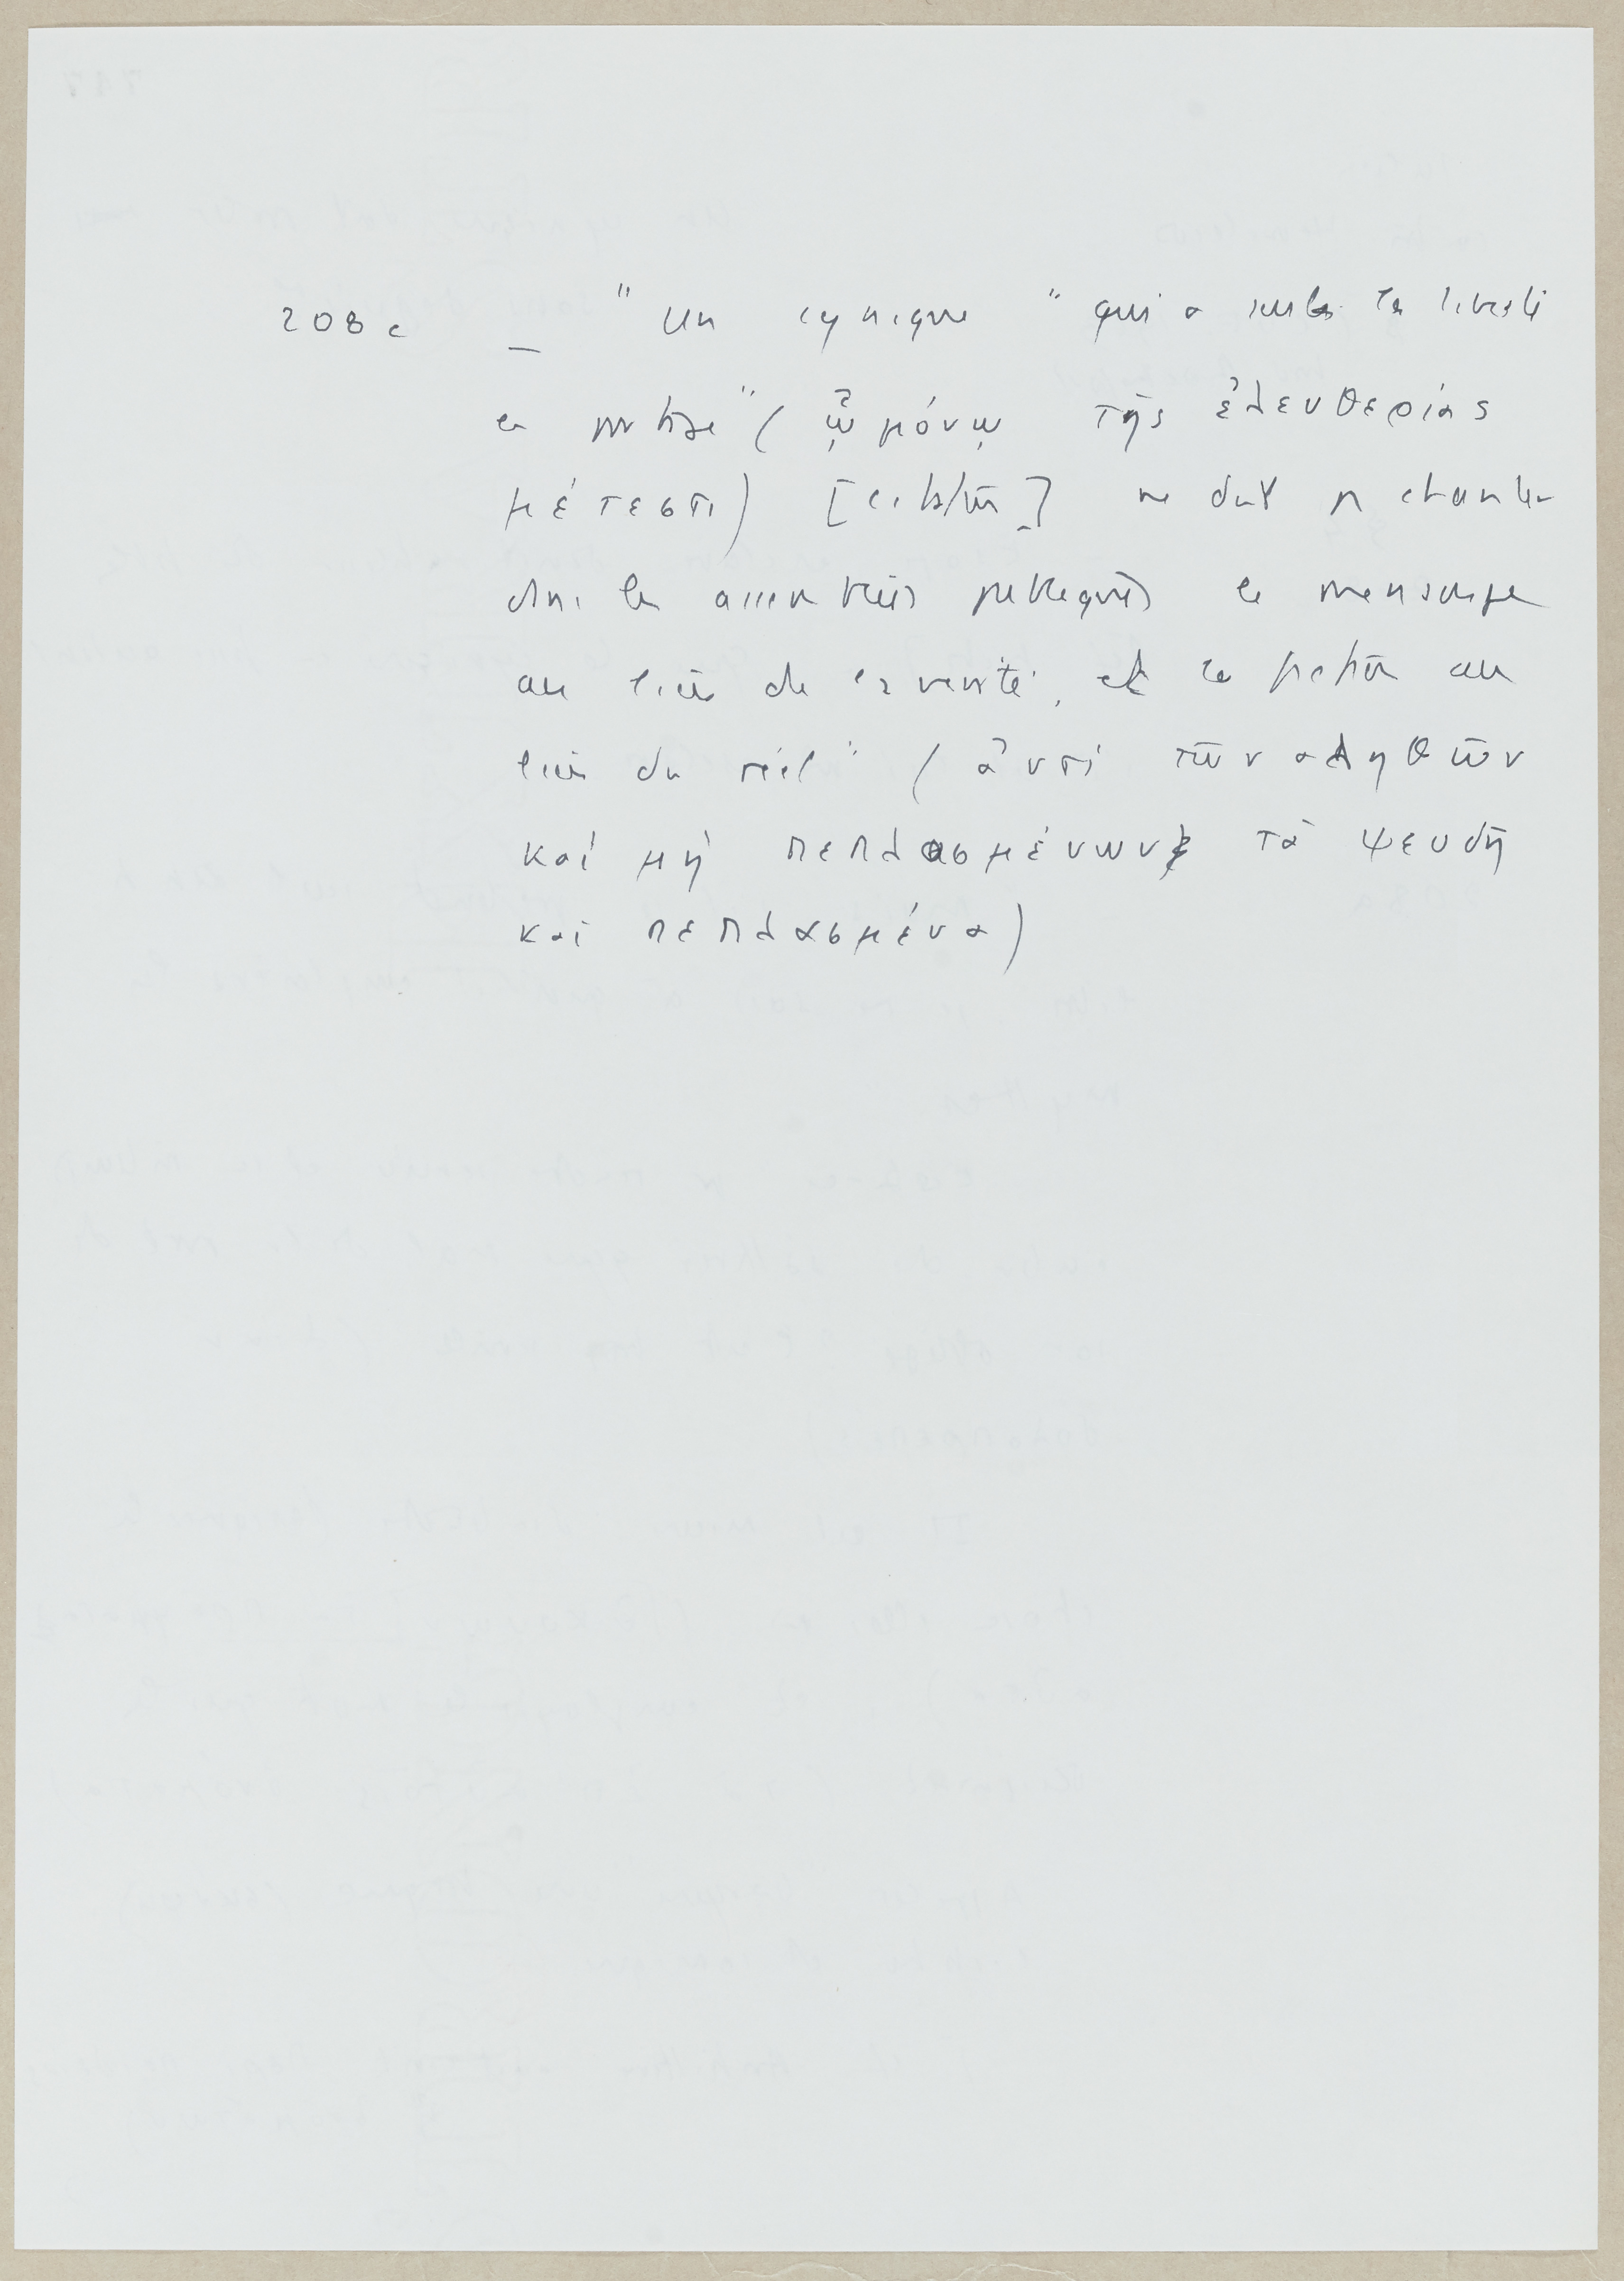 208 c _ " Un cynique " qui a seul la liberté
en partage " ( ᾧ μόνῳ τῆς ἐλευθερίας
μέτεστι) [ ] ne doit pas chanter
dans les assemblées publiques le mensonge
au lieu de la vérité, et la fiction au
lieu du réel " ( ἀντί τῶν αληθῶν
καί μή πεπλασμένων τὰ ψευδῆ
καὶ πεπλασμένα)